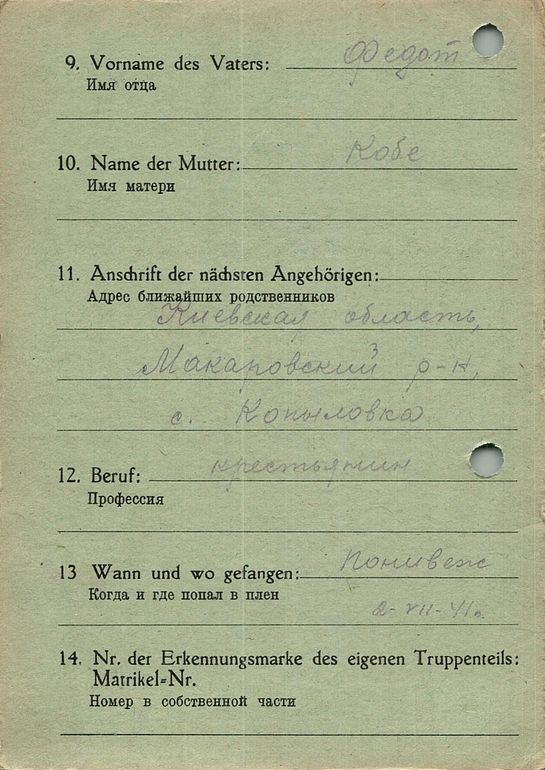 9. Vorname des Vaters: Федот
Имя отца
10. Name der Mutter: Кобе
Имя матери
11. Anschrift der nächsten Angehörigen:
Адрес ближайших родственников
Киевская область,
Макаровский р-н,
с. Копыловка
12. Beruf: крестьянин
Профессия
13 Wann und wo gefangen: Понивеж
Когда и где попал в плен
2-VII-41г.
14. Nr. der Erkennungsmarke des eigenen Truppenteils:
Matrikel-Nr.
Номер в собственной части